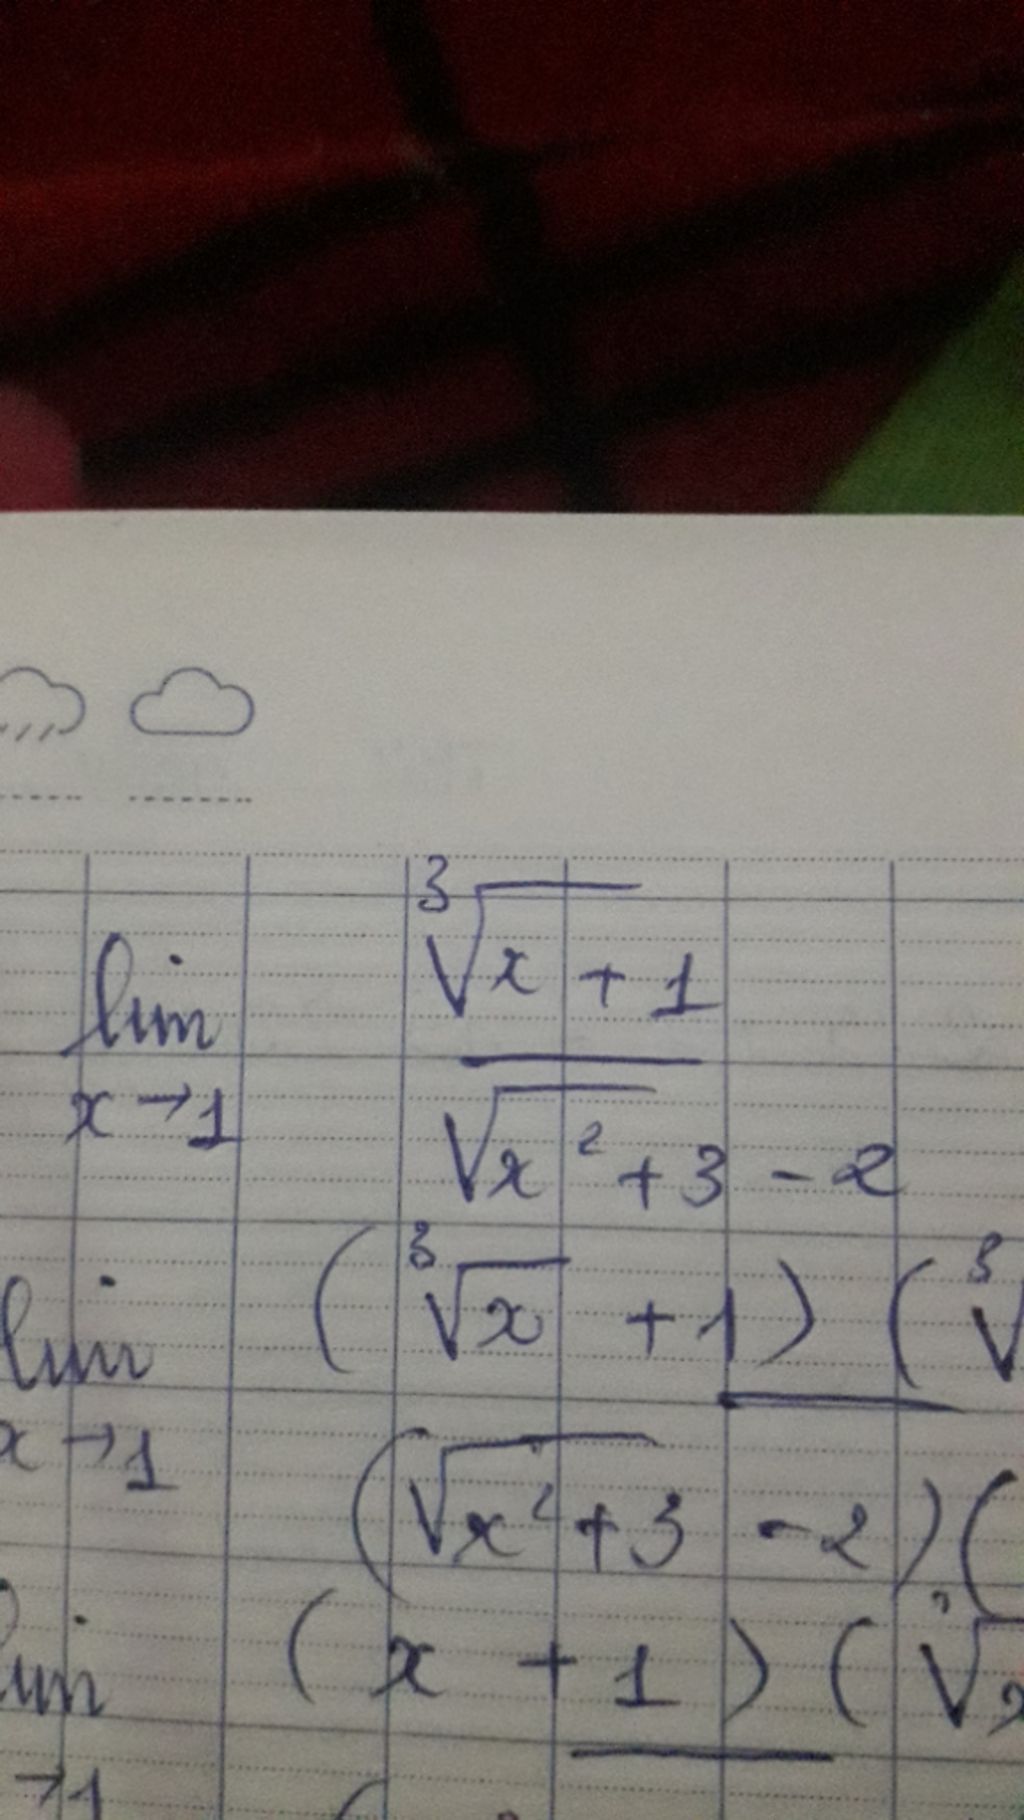 lim ∛x + 1
x→1 √x² + 3 - 2
lim (∛x + 1) (∛
x→1 (√x² + 3 - 2) (
lim (x + 1) (√x
→1 (